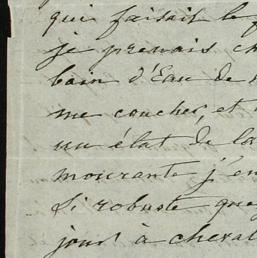 qui faisait le
je prenais ch
bain d'Eau de
me coucher, et
un état de
mourante j'en
Si robuste que
jour à cheval